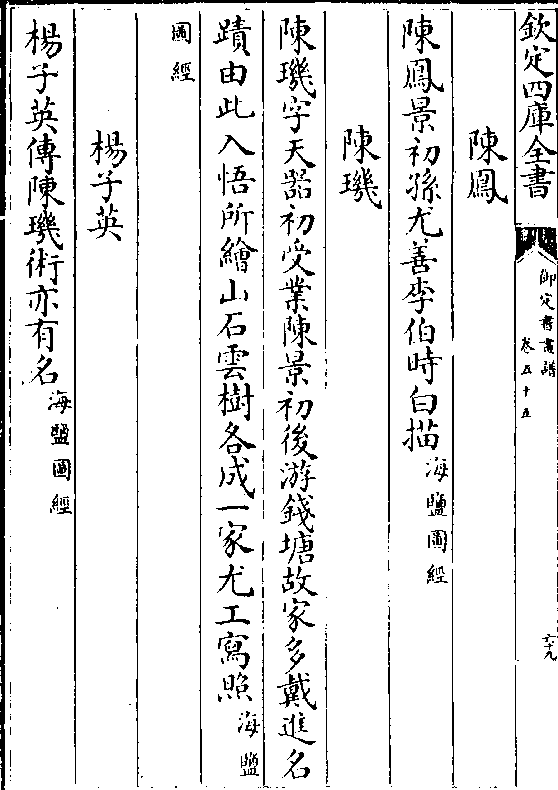 欽定四庫全書
御定書畫譜
卷五十五
六十九
陳鳳
陳鳳景初孫尤善李伯時白描海鹽圖經
陳璣
陳璣字天器初受業陳景初後游錢塘故家多戴進名
蹟由此入悟所繪山石雲樹各成一家尤工寫照海鹽
圖經
楊子英
楊子英傳陳璣術亦有名海鹽圖經